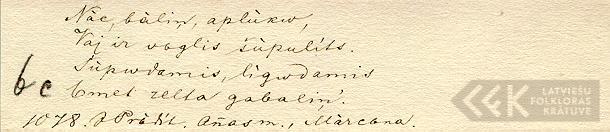 Nāc, bāliņ, aplūkw,
Vaj ir voglis šūpulīts.
Šūpwdamis, līgwdamis
bc Emet zelta gabaliņ'.
1078. J Prātit. Añasm., Mārcena.
LATVIEŠU
FOLKLORAS
KRĀTUVE